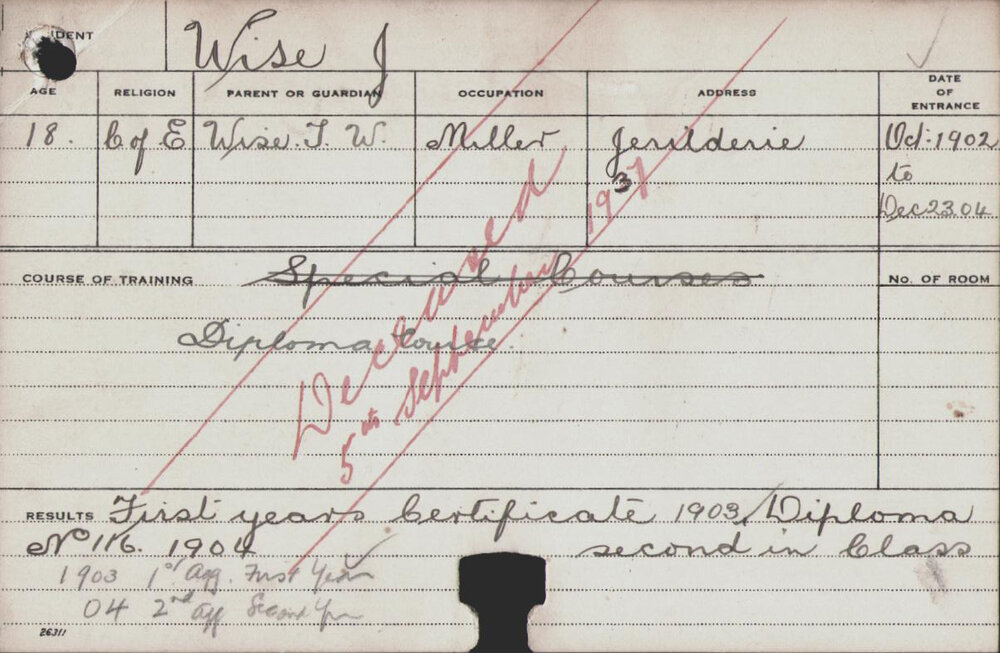 Wise J
AGE RELIGION PARENT OR GUARDIAN OCCUPATION ADDRESS DATE OF ENTRANCE
18. C of E Wise. T. W. Miller Jerilderie Oct. 1902
to
Dec 23 04
COURSE OF TRAINING Special Courses No. OF ROOM
Diploma Course.
Deceased
5th September 1937
RESULTS First years Certificate 1903, Diploma
No 116. 1904 second in Class
1903 1st Agg. First Year
04 2nd Agg Second Yr
26311